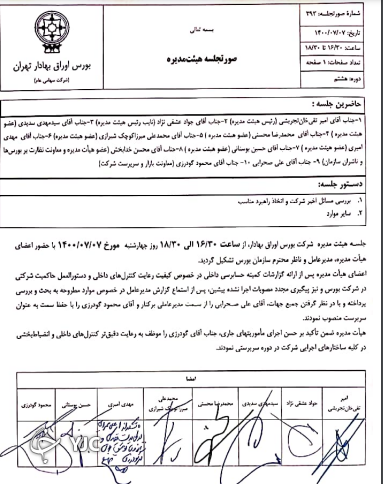 بورس اوراق بهادار تهران
(شرکت سهامی عام)
بسمه تعالی
صورتجلسه هیئت‌مدیره
شمارۀ صورتجلسه: ۳۹۲
تاریخ: ۱۴۰۰/۰۷/۰۷
ساعت: ۱۶/۳۰ تا ۱۸/۳۰
تعداد صفحات: ۱ صفحه
دوره: هشتم
حاضرین جلسه :
۱-جناب آقای امیر تقی‌خان‌تجریشی (رئیس هیئت مدیره) ۲-جناب آقای جواد عشقی نژاد (نایب رئیس هیئت مدیره) ۳-جناب آقای سیدمهدی سدیدی (عضو
هیئت مدیره) ۴-جناب آقای محمدرضا محسنی (عضو هیئت مدیره) ۵-جناب آقای محمدعلی میرزاکوچک شیرازی (عضو هیئت مدیره) ۶-جناب آقای مهدی
امیری (عضو هیئت مدیره) ۷-جناب آقای حسین بوستانی (عضو هیئت مدیره) ۸-جناب آقای محسن خدابخش (عضو هیأت مدیره و معاونت نظارت بر بورس‌ها
و ناشران سازمان) ۹- جناب آقای علی صحرایی ۱۰- جناب آقای محمود گودرزی (معاونت بازار و سرپرست شرکت)
دستور جلسه:
۱. بررسی مسائل اخیر شرکت و اتخاذ راهبرد مناسب
۲. سایر موارد
جلسه هیئت مدیره شرکت بورس اوراق بهادار، از ساعت ۱۶/۳۰ الی ۱۸/۳۰ روز چهارشنبه مورخ ۱۴۰۰/۰۷/۰۷ با حضور اعضای
هیأت مدیره، مدیرعامل و ناظر محترم سازمان بورس تشکیل گردید.
اعضای هیأت مدیره پس از ارائه گزارشات کمیته حسابرسی داخلی در خصوص کیفیت رعایت کنترل‌های داخلی و دستورالعمل حاکمیت شرکتی
در شرکت بورس و نیز پیگیری مجدد مصوبات اجرا نشده پیشین، پس از استماع گزارش مدیرعامل در خصوص موارد مطروحه به بحث و بررسی
پرداخته و با در نظر گرفتن جمیع جهات، آقای علی صحرایی را از سمت مدیرعاملی برکنار و آقای محمود گودرزی را با حفظ سمت به عنوان
سرپرست منصوب نمودند.
هیأت مدیره ضمن تأکید بر حسن اجرای مأموریتهای جاری، جناب آقای گودرزی را موظف به رعایت دقیق‌تر کنترل‌های داخلی و انضباط‌بخشی
در کلیه ساختارهای اجرایی شرکت در دوره سرپرستی نمودند.
امضا
امیر تقی‌خان‌تجریشی
جواد عشقی نژاد
سیدمهدی سدیدی
محمدرضا محسنی
محمدعلی میرزاکوچک شیرازی
مهدی امیری
حسین بوستانی
محمود گودرزی
YJC